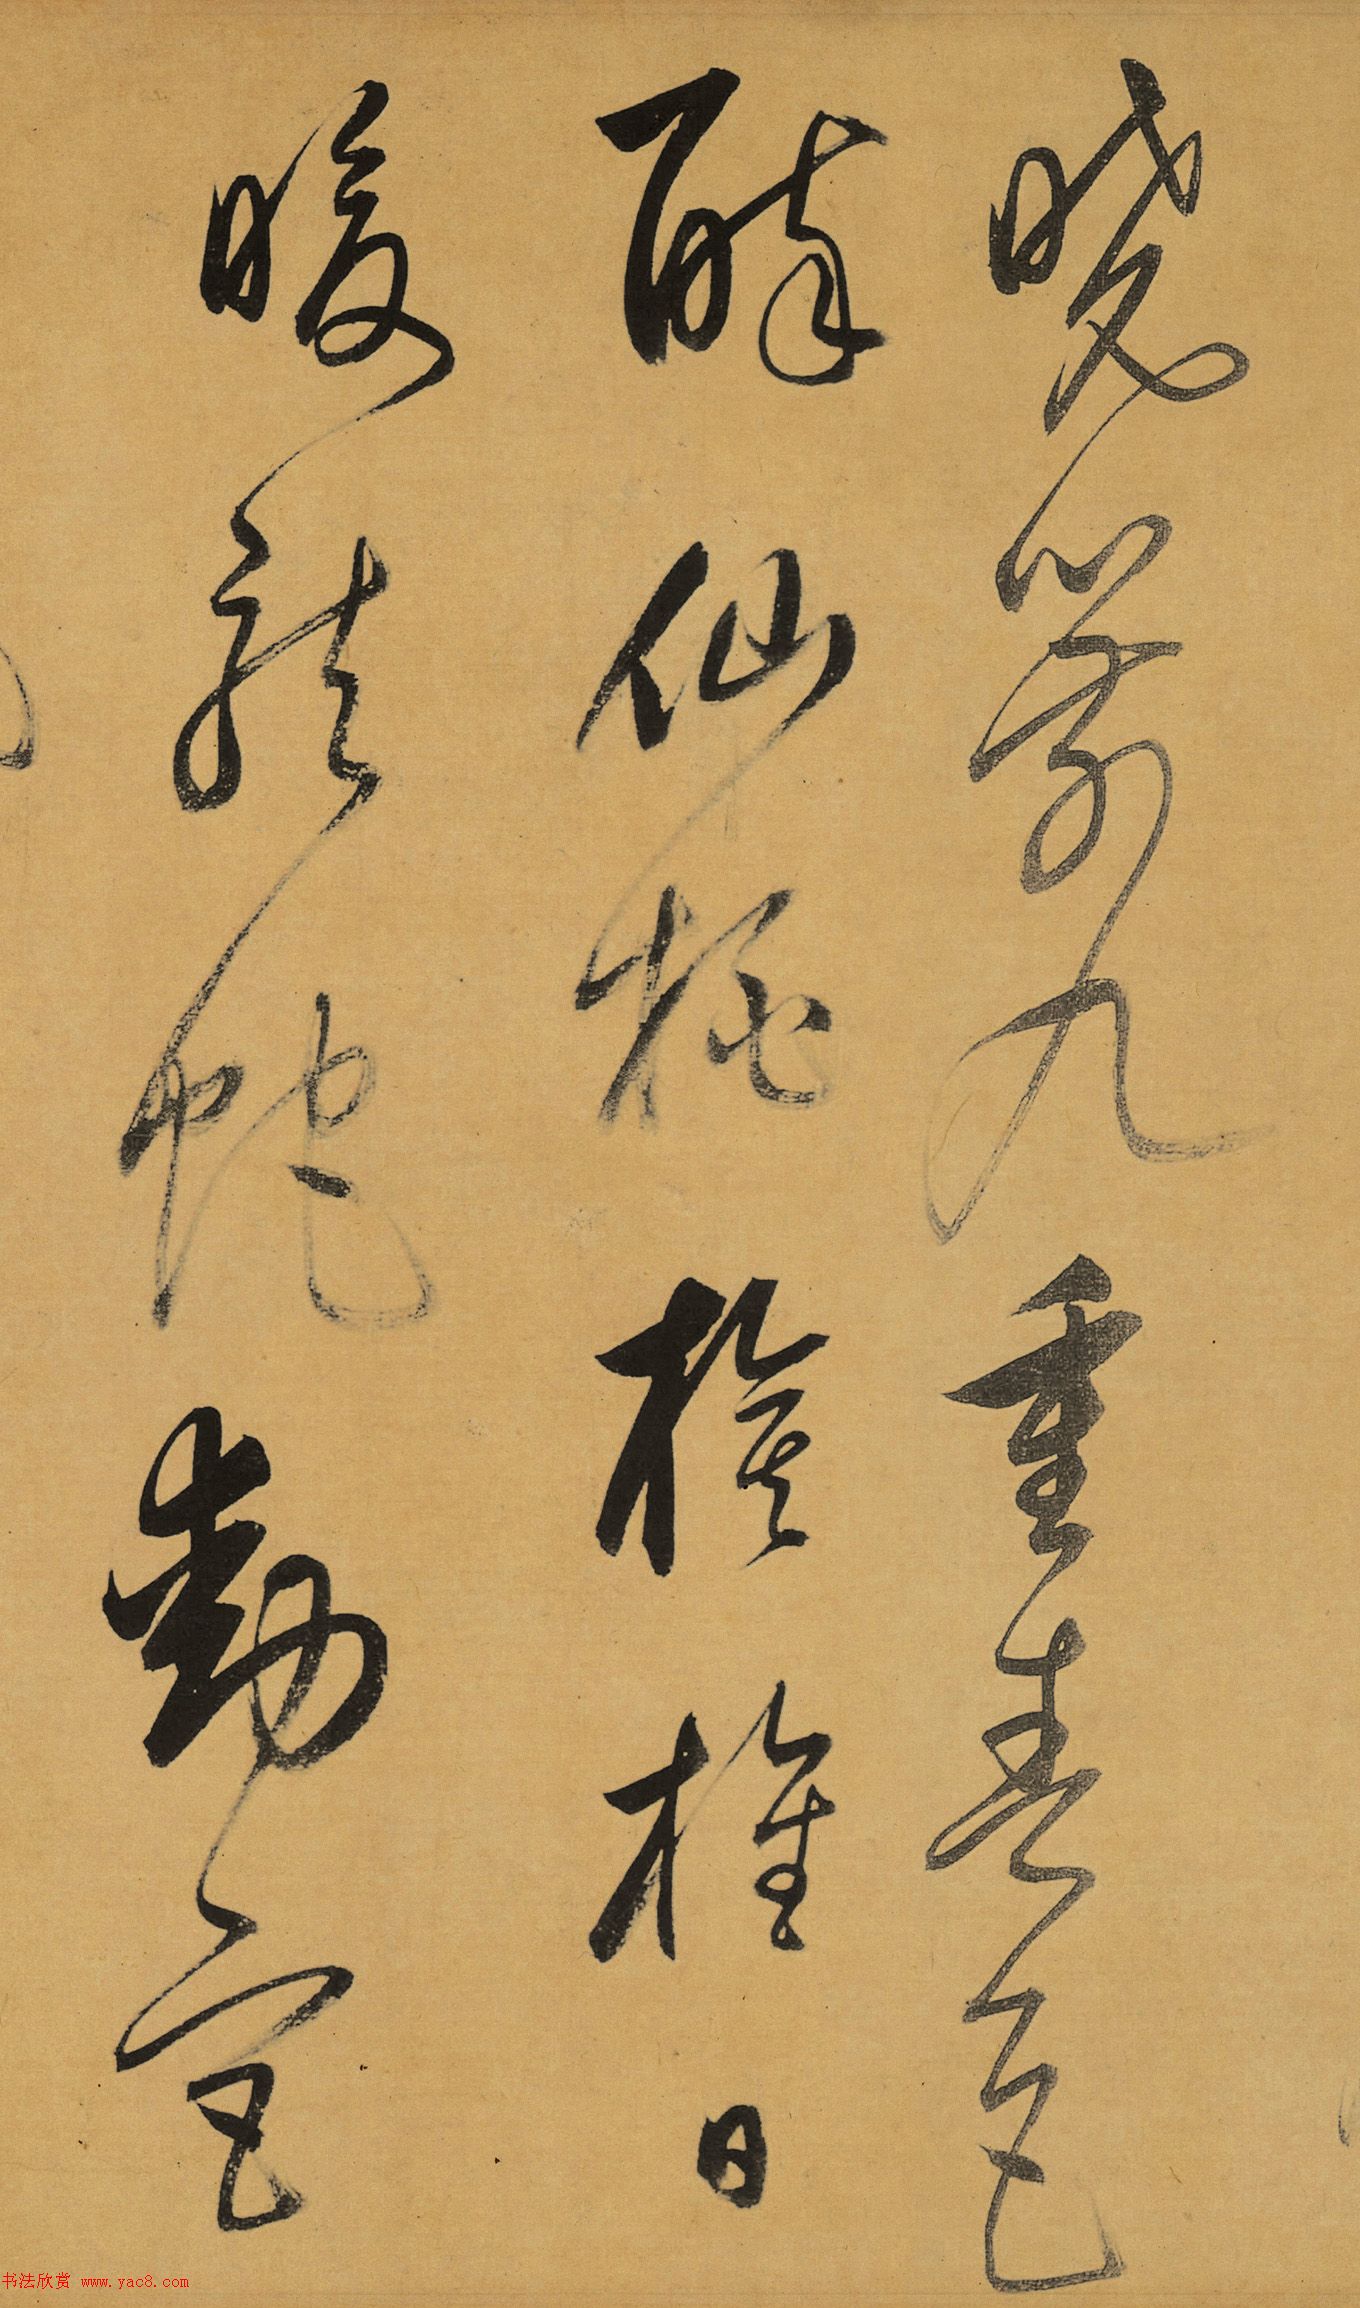 曉箭九重春色
醉仙桃旗旌日
暖龍蛇動宮
书法欣赏 www.yac8.com